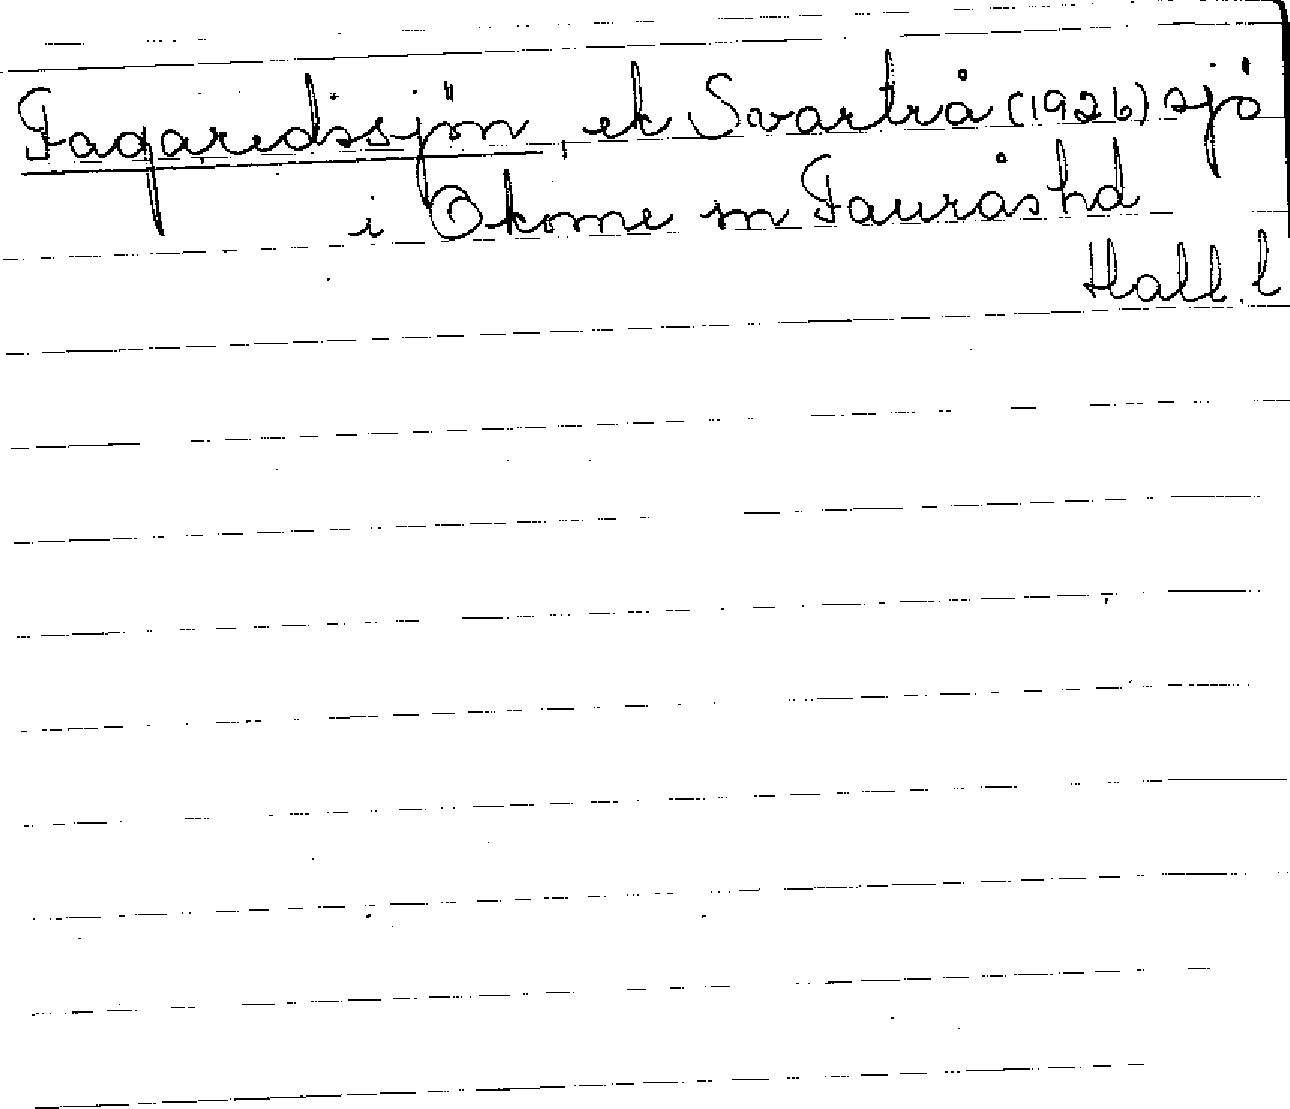 Fagaredssjön, ek Svartrå (1926) sjö
i Okome sn Faurås hd
Hall. l